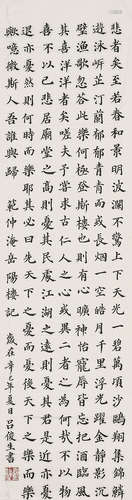 悲者矣至若春和景明波瀾不驚上下天光一碧萬頃沙鷗翔集錦鱗
游泳岸芷汀蘭郁郁青青而或長煙一空皓月千里浮光躍金靜影沉
璧漁歌互答此樂何極登斯樓也則有心曠神怡寵辱皆忘把酒臨風
其喜洋洋者矣嗟夫予嘗求古仁人之心或異二者之為何哉不以物
喜不以己悲居廟堂之高則憂其民處江湖之遠則憂其君是進亦憂
退亦憂然則何時而樂耶其必曰先天下之憂而憂後天下之樂而樂
歟噫微斯人吾誰與歸 範仲淹岳陽樓記 歲在辛巳年夏日呂俊生書